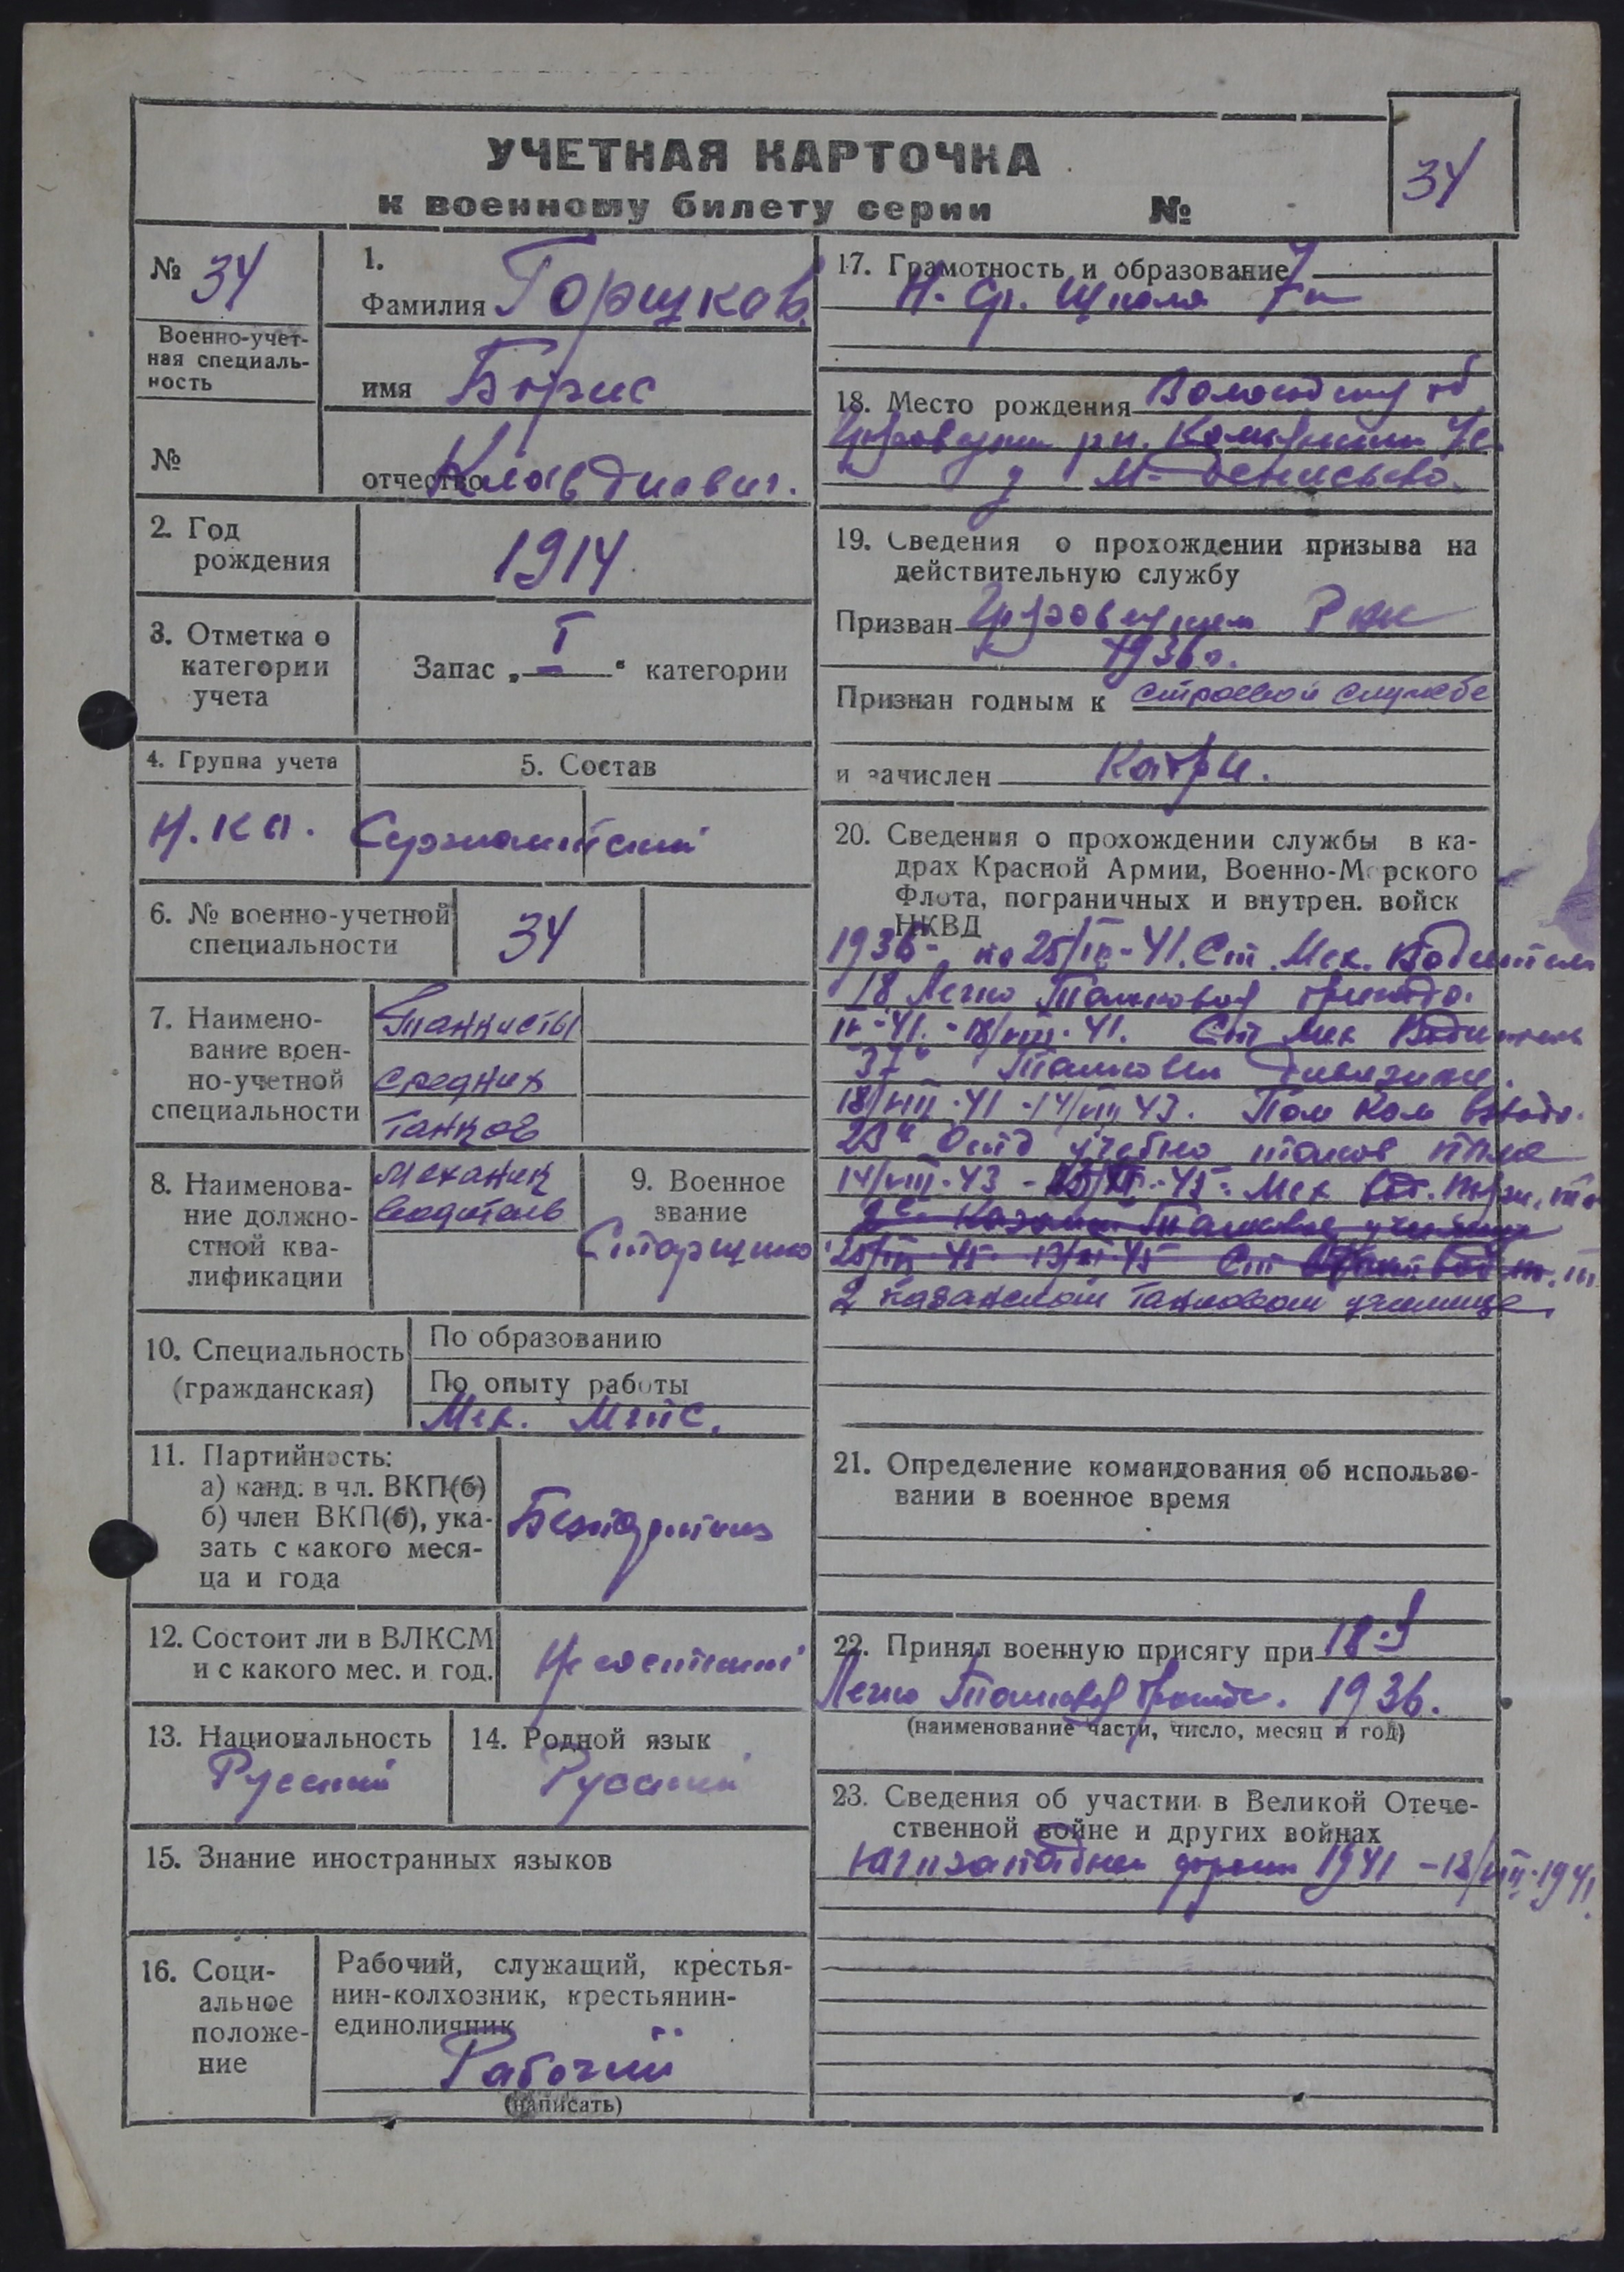 УЧЕТНАЯ КАРТОЧКА
к военному билету серии №
34
№ 34
Военно-учет-
ная специаль-
ность
№
1.
Фамилия Горшков
имя Борис
отчество Клавдиевич.
2. Год
рождения
1914
3. Отметка о
категории
учета
Запас „I“ категории
4. Группа учета
Н.КА.
5. Состав
Сержантский
6. № военно-учетной
специальности
34
7. Наимено-
вание воен-
но-учетной
специальности
Танкисты
средних
танков
8. Наименова-
ние должно-
стной ква-
лификации
Механик
водитель
9. Военное
звание
Старшина
10. Специальность
(гражданская)
По образованию
По опыту работы
Мех. МТС.
11. Партийность:
а) канд. в чл. ВКП(б)
б) член ВКП(б), ука-
зать с какого меся-
ца и года
12. Состоит ли в ВЛКСМ
и с какого мес. и год.
13. Национальность
Русский
14. Родной язык
Русский
15. Знание иностранных языков
16. Соци-
альное
положе-
ние
Рабочий, служащий, крестья-
нин-колхозник, крестьянин-
единоличник
Рабочий
(написать)
17. Грамотность и образование
Н. Ср. Школа 7
18. Место рождения
д М-Денисьево.
19. Сведения о прохождении призыва на
действительную службу
Призван РВК
1936г.
Признан годным к строевой службе
и зачислен
20. Сведения о прохождении службы в ка-
драх Красной Армии, Военно-Морского
Флота, пограничных и внутрен. войск
НКВД
1936- по Ст. Мех. Водитель
18 Легко Танковой бригада.
Ст Мех Водитель
37й Танковой Дивизии.
18/VIII-41 -14/VIII 43. Пом Ком взвода.
29й учебно танков полк
14/VIII-43 - Мех
2 Казанском Танковом училище
21. Определение командования об использо-
вании в военное время
22. Принял военную присягу при 18-й
Легко Танковой 1936.
(наименование части, число, месяц и год)
23. Сведения об участии в Великой Отече-
ственной войне и других войнах
Югозападном фронт 1941 -18/VIII-1941